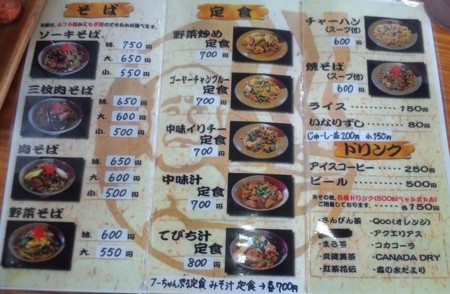 そば
ソーキそば
特 750円
大 650円
小 550円
三枚肉そば
特 650円
大 600円
小 500円
肉そば
特 660円
大 600円
小 500円
野菜そば
大 600円
小 550円
定食
野菜炒め
定食
700円
ゴーヤーチャンプルー
定食
700円
中味イリチー
定食
700円
中味汁
定食
700円
てびち汁
定食
800円
フーちゃんぷる定食 みそ汁 定食 → 各700円
チャーハン
(スープ付)
600円
焼そば
(スープ付)
600円
ライス 150円
いなりずし 80円
じゅーしー 大200円 小150円
ドリンク
アイスコーヒー 250円
ビール 500円
その他、各種ドリンク(500mlペットボトル)
ご用意しております。 各150円
・さんぴん茶
・Qoo(オレンジ)
・アクエリアス
・まろ茶
・コカコーラ
・爽健美茶
・CANADA DRY
・紅茶花伝
・森の水だより